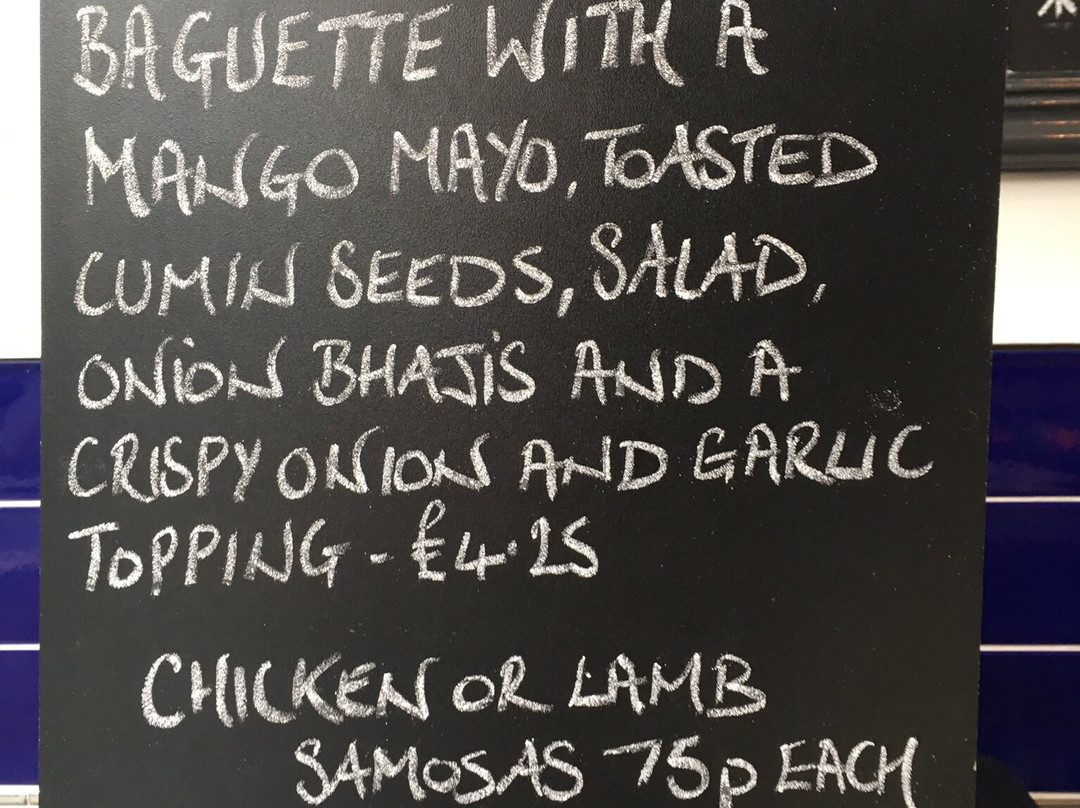 BAGUETTE WITH A
MANGO MAYO, TOASTED
CUMIN SEEDS, SALAD,
ONION BHAJIS AND A
CRISPY ONION AND GARLIC
TOPPING - £4.25
CHICKEN OR LAMB
SAMOSAS 75p EACH